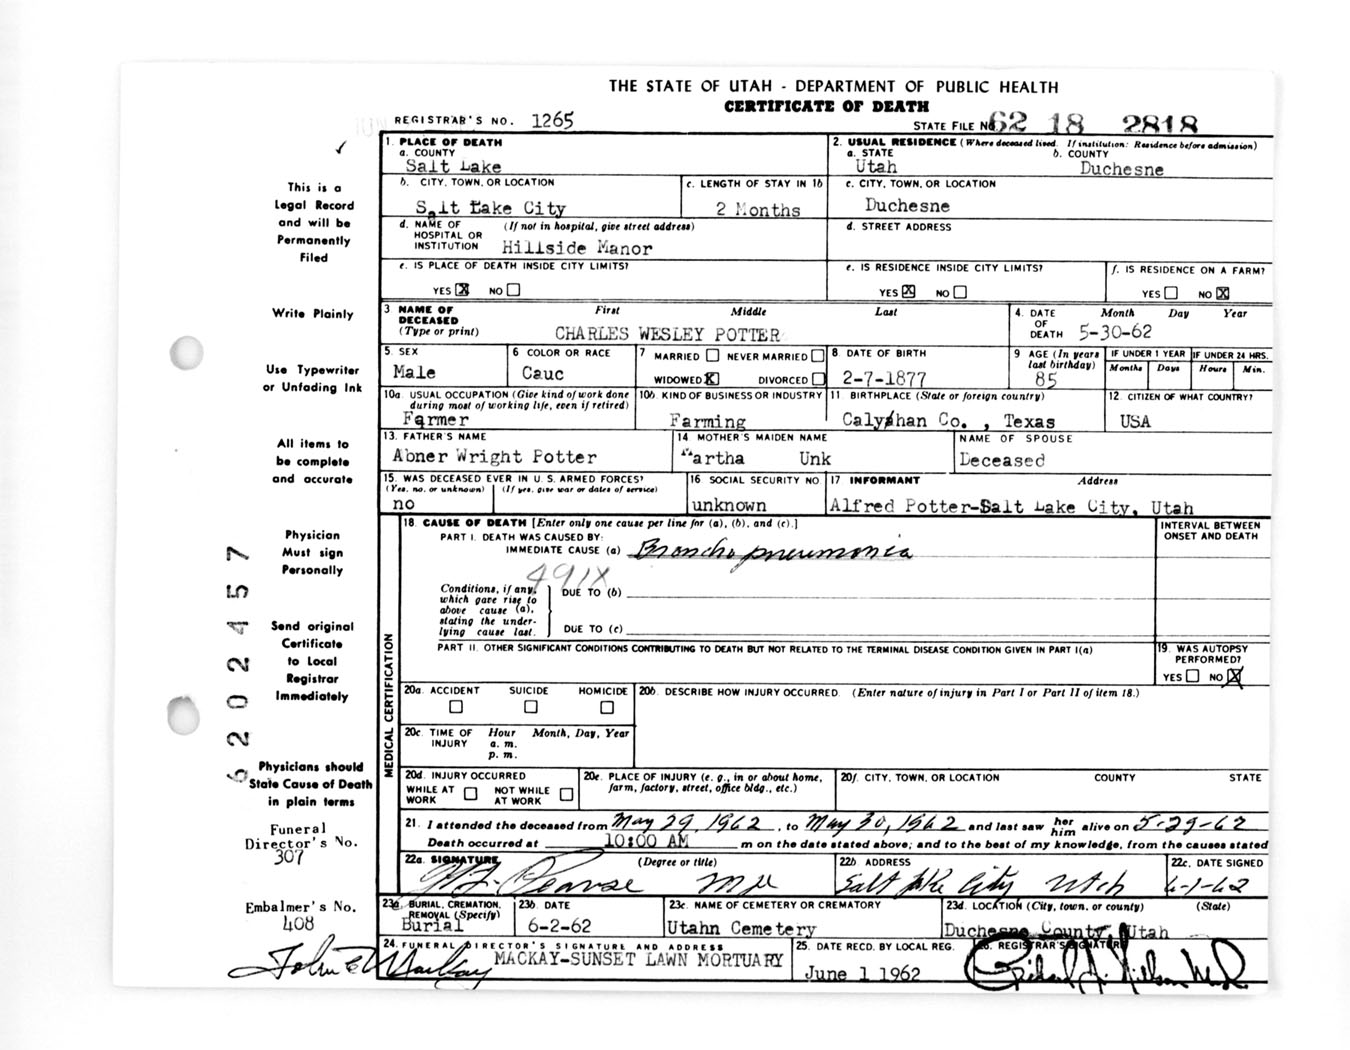 THE STATE OF UTAH - DEPARTMENT OF PUBLIC HEALTH
CERTIFICATE OF DEATH
REGISTRAR'S NO. 1265
STATE FILE NO. 62 18 2818
1. PLACE OF DEATH
a. COUNTY
Salt Lake
2. USUAL RESIDENCE (Where deceased lived. If institution: Residence before admission)
a. STATE b. COUNTY
Utah Duchesne
b. CITY, TOWN, OR LOCATION
Salt Lake City
c. LENGTH OF STAY IN 1b
2 Months
c. CITY, TOWN, OR LOCATION
Duchesne
d. NAME OF HOSPITAL OR INSTITUTION (If not in hospital, give street address)
Hillside Manor
d. STREET ADDRESS
e. IS PLACE OF DEATH INSIDE CITY LIMITS?
YES X NO
e. IS RESIDENCE INSIDE CITY LIMITS?
YES X NO
f. IS RESIDENCE ON A FARM?
YES NO X
3 NAME OF DECEASED (Type or print)
First Middle Last
CHARLES WESLEY POTTER
4. DATE OF DEATH Month Day Year
5-30-62
5. SEX
Male
6 COLOR OR RACE
Cauc
7 MARRIED NEVER MARRIED
WIDOWED X DIVORCED
8 DATE OF BIRTH
2-7-1877
9 AGE (In years last birthday)
85
IF UNDER 1 YEAR IF UNDER 24 HRS.
Months Days Hours Min.
10a. USUAL OCCUPATION (Give kind of work done during most of working life, even if retired)
Farmer
10b. KIND OF BUSINESS OR INDUSTRY
Farming
11 BIRTHPLACE (State or foreign country)
Calyhan Co. , Texas
12 CITIZEN OF WHAT COUNTRY?
USA
13. FATHER'S NAME
Abner Wright Potter
14 MOTHER'S MAIDEN NAME
Martha Unk
NAME OF SPOUSE
Deceased
15. WAS DECEASED EVER IN U.S. ARMED FORCES?
(Yes, no, or unknown) (If yes, give war or dates of service)
no
16 SOCIAL SECURITY NO
unknown
17 INFORMANT Address
Alfred Potter-Salt Lake City, Utah
18. CAUSE OF DEATH [Enter only one cause per line for (a), (b), and (c).]
PART I. DEATH WAS CAUSED BY:
IMMEDIATE CAUSE (a) Bronchopneumonia
INTERVAL BETWEEN ONSET AND DEATH
491X
Conditions, if any, which gave rise to above cause (a), stating the underlying cause last.
DUE TO (b)
DUE TO (c)
PART II. OTHER SIGNIFICANT CONDITIONS CONTRIBUTING TO DEATH BUT NOT RELATED TO THE TERMINAL DISEASE CONDITION GIVEN IN PART I(a)
19. WAS AUTOPSY PERFORMED?
YES NO X
MEDICAL CERTIFICATION
20a. ACCIDENT SUICIDE HOMICIDE
20b. DESCRIBE HOW INJURY OCCURRED. (Enter nature of injury in Part I or Part II of item 18.)
20c. TIME OF INJURY Hour Month, Day, Year
a. m.
p. m.
20d. INJURY OCCURRED
WHILE AT WORK NOT WHILE AT WORK
20e. PLACE OF INJURY (e. g., in or about home, farm, factory, street, office bldg., etc.)
20f. CITY, TOWN, OR LOCATION COUNTY STATE
21. I attended the deceased from May 29, 1962, to May 30, 1962 and last saw her him alive on 5-29-62
Death occurred at 10:00 AM m on the date stated above; and to the best of my knowledge, from the causes stated
22a. SIGNATURE (Degree or title)
Pearse MD
22b ADDRESS
Salt Lake City Utah
22c. DATE SIGNED
6-1-62
23a. BURIAL, CREMATION, REMOVAL (Specify)
Burial
23b. DATE
6-2-62
23c. NAME OF CEMETERY OR CREMATORY
Utahn Cemetery
23d. LOCATION (City, town, or county) (State)
Duchesne County, Utah
24. FUNERAL DIRECTOR'S SIGNATURE AND ADDRESS
John E Mackay
MACKAY-SUNSET LAWN MORTUARY
25. DATE RECD. BY LOCAL REG.
June 1 1962
26. REGISTRAR'S SIGNATURE
This is a
Legal Record
and will be
Permanently
Filed
Write Plainly
Use Typewriter
or Unfading Ink
All items to
be complete
and accurate
Physician
Must sign
Personally
Send original
Certificate
to Local
Registrar
Immediately
Physicians should
State Cause of Death
in plain terms
6202457
Funeral
Director's No.
307
Embalmer's No.
408